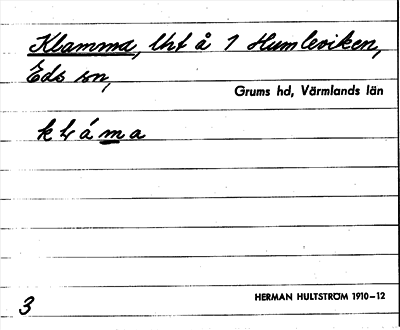 Klamma, lht å 1 Humleviken,
Eds sn,
Grums hd, Värmlands län
k ł á m a
3
HERMAN HULTSTRÖM 1910–12